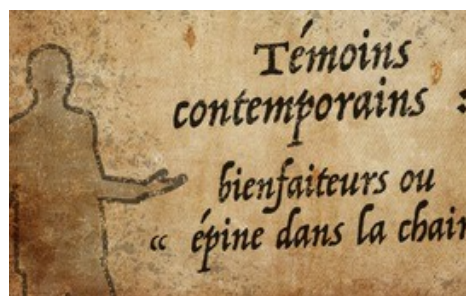 Témoins
contemporains :
bienfaiteurs ou
« épine dans la chair